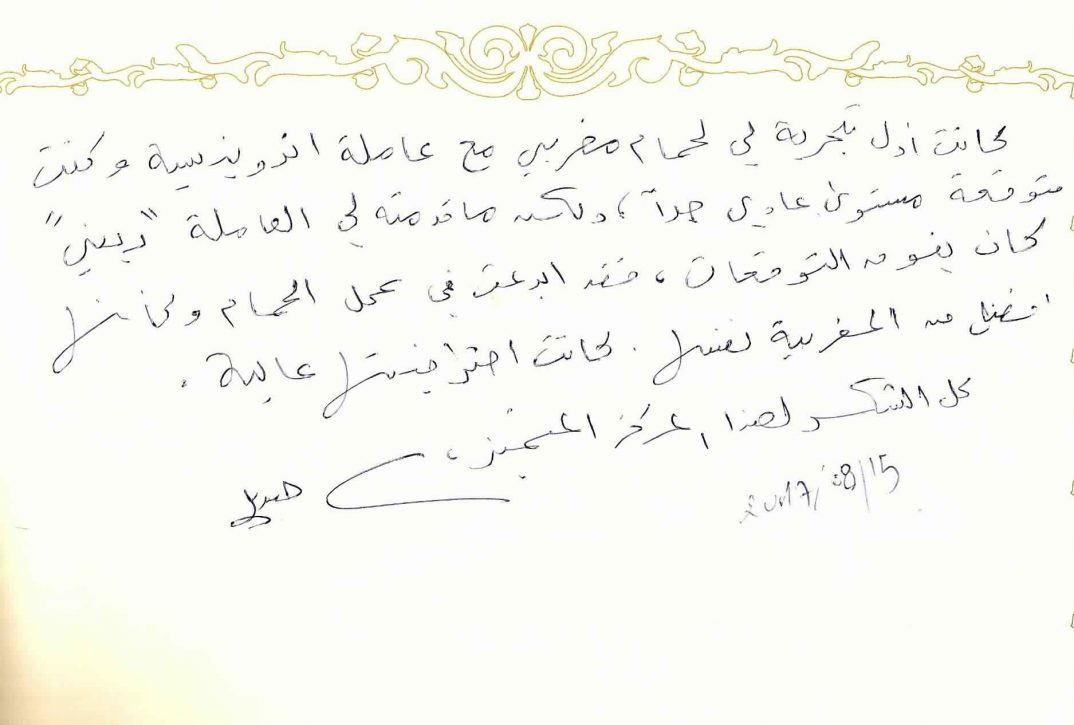 كانت أول تجربة لي لحمام مغربي مع عاملة اندونيسية وكنت
متوقعة مستوى عادي جداً، ولكن ما قدمته لي العاملة "ريني"
كان يفوق التوقعات، فقد ابدعت في عمل الحمام وكأنها
افضل من المغربية نفسها. كانت احترافيتها عالية.
كل الشكر لهذا المركز المتميز،
2017/08/15